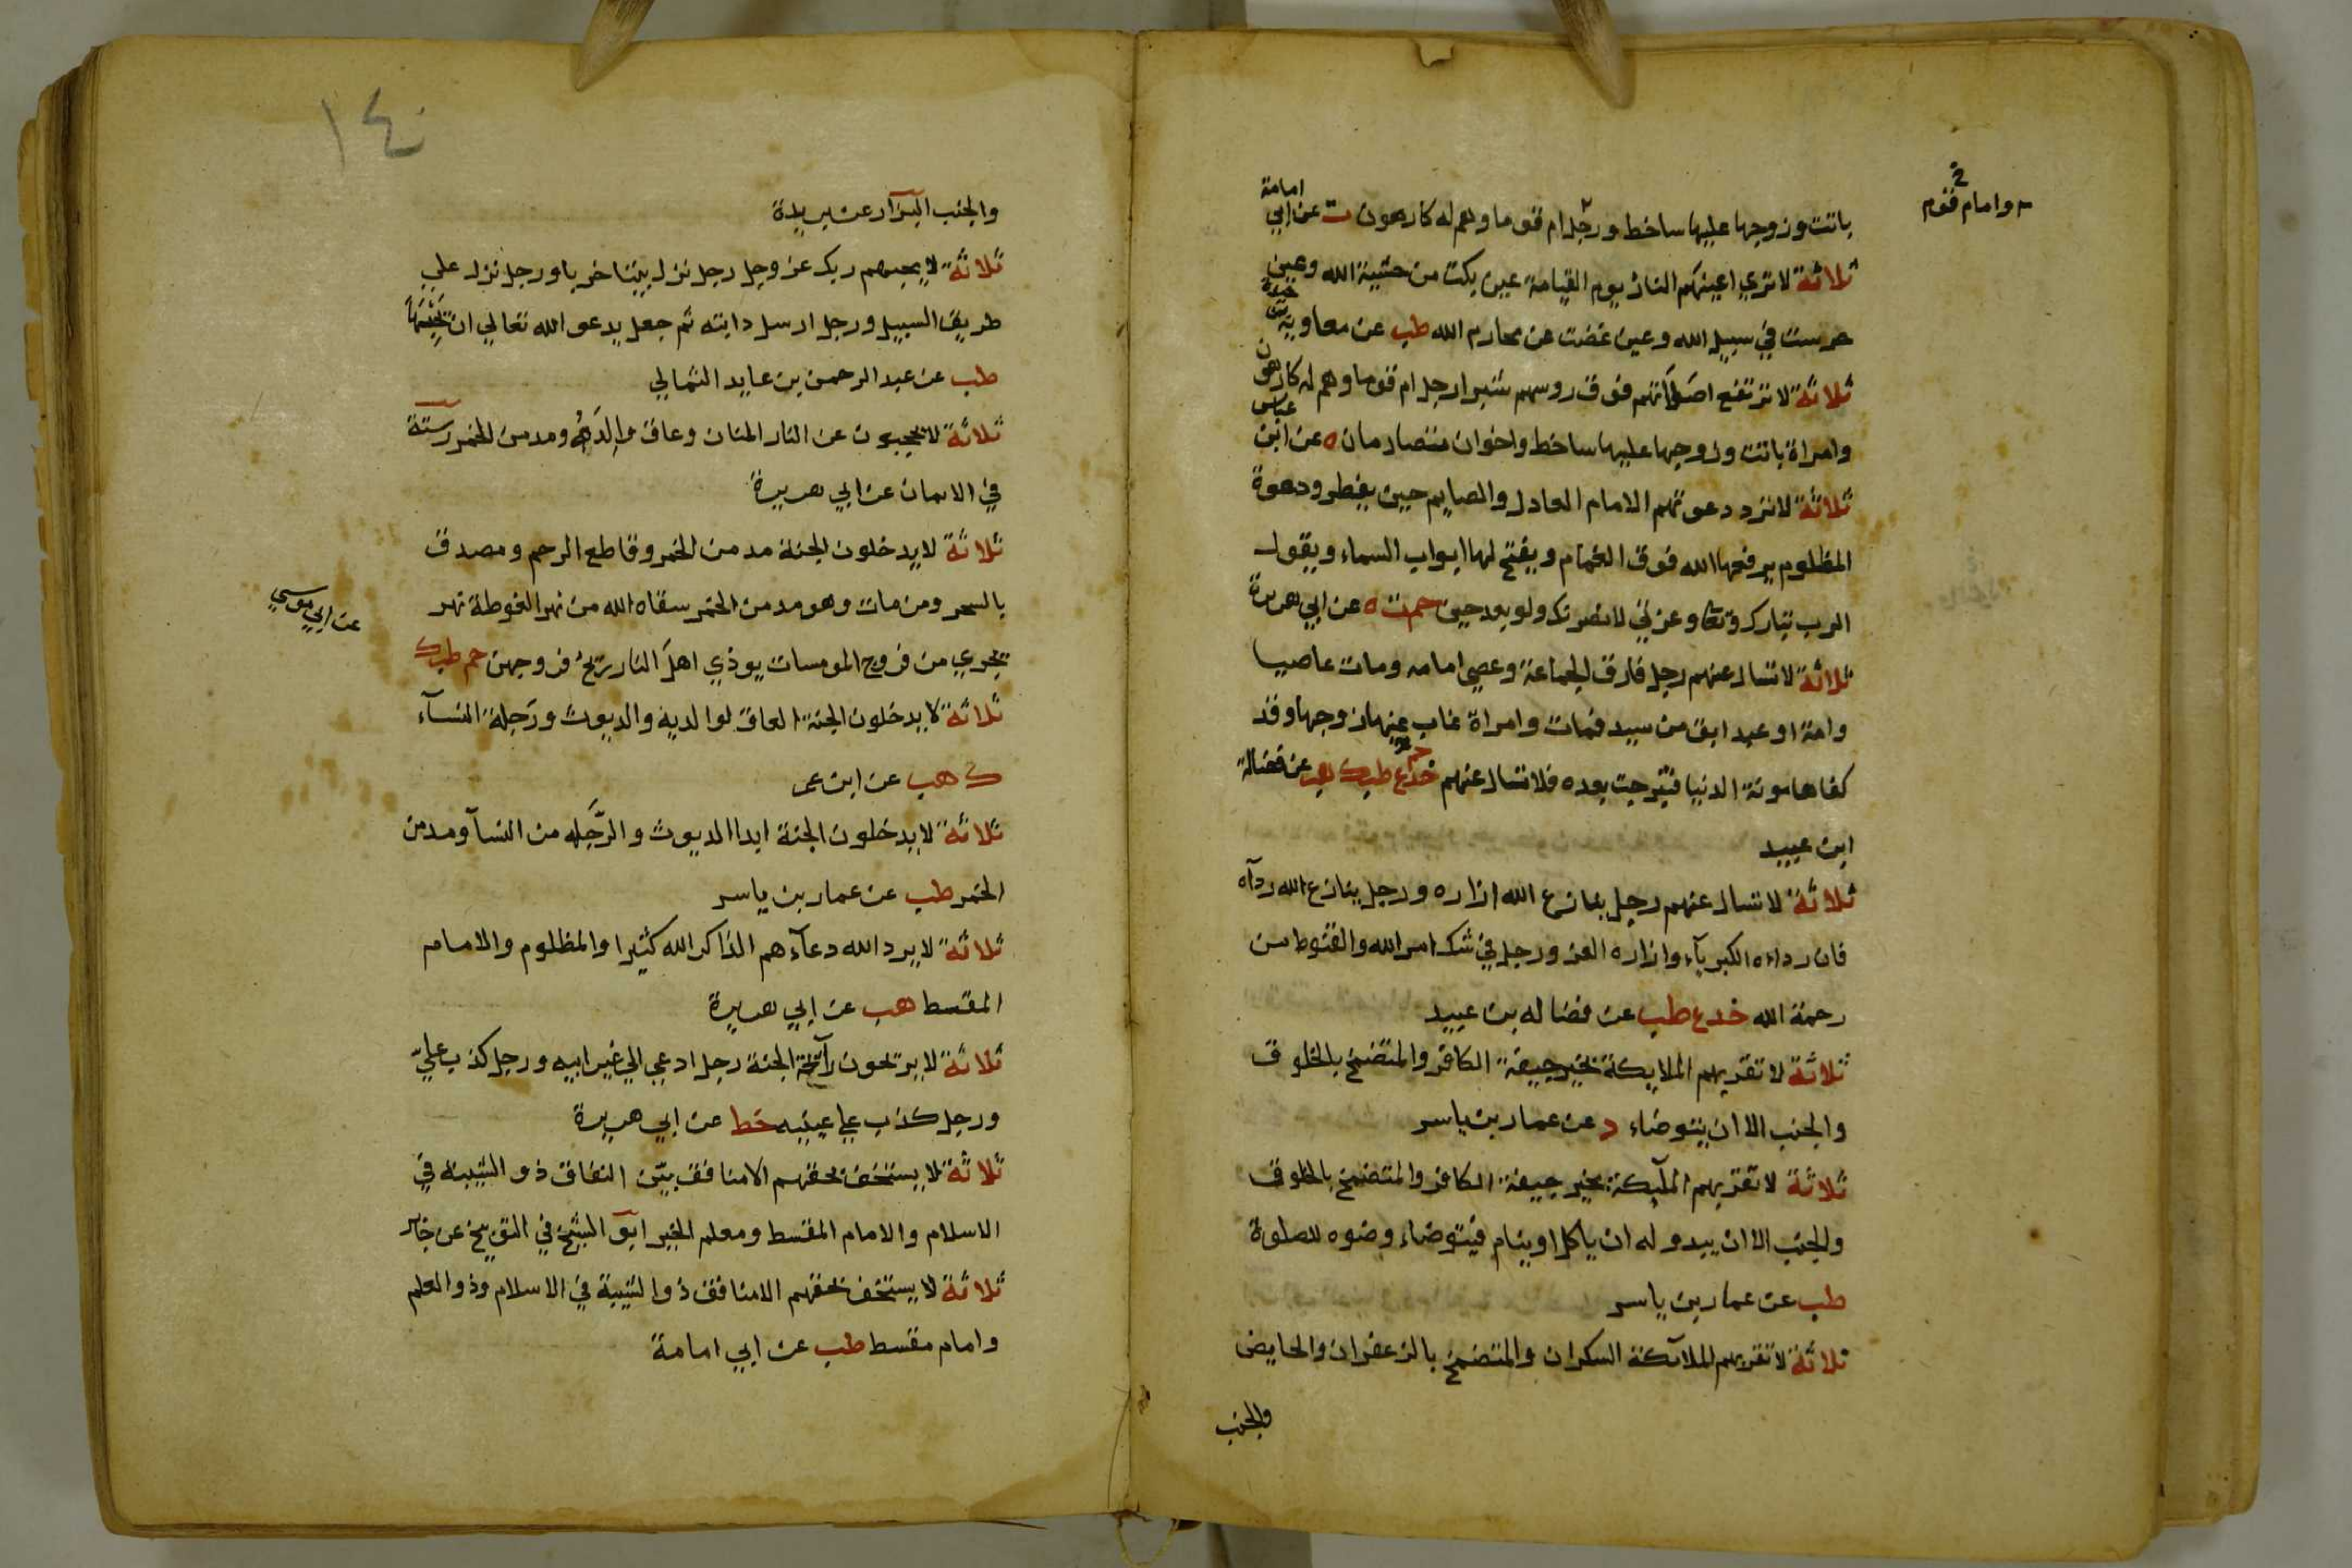 وامام قوم
باتت وزوجها عليها ساخط ورجل ام قوما وهم له كارهون ت عن ابي امامة
ثلاثة لا تري اعينهم النار يوم القيامة عين بكت من خشية الله وعين
حرست في سبيل الله وعين غضت عن محارم الله طب عن معاوية
ثلاثة لا ترتفع اصلاتهم فوق روسهم شبرا رجل ام قوما وهم له كارهون
وامراة باتت وزوجها عليها ساخط واخوان متصارمان ه عن ابن عباس
ثلاثة لا ترد دعوتهم الامام العادل والصايم حين يفطر ودعوة
المظلوم يرفعها الله فوق الغمام ويفتح لها ابواب السماء ويقول
الرب تبارك وتعا وعزتي لانصرنك ولو بعد حين حم ت ه عن ابي هريرة
ثلاثة لا تسال عنهم رجل فارق الجماعة وعصي امامه ومات عاصيا
وامة او عبد ابق من سيده فمات وامراة غاب عنها زوجها وقد
كفاها مونة الدنيا فتبرجت بعده فلا تسال عنهم خد ع طب ك هب عن فضالة
ابن عبيد
ثلاثة لا تسال عنهم رجل ينازع الله ازاره ورجل ينازع الله رداه
فان رداءه الكبرياء وازاره العز ورجل في شك امر الله والقنوط من
رحمة الله خد ع طب عن فضاله بن عبيد
ثلاثة لا تقربهم الملايكة بخير جيفة الكافر والمتضمخ بالخلوق
والجنب الا ان يتوضاء د عن عمار بن ياسر
ثلاثة لا تقربهم الملٓيكة بخير جيفة الكافر والمتضمخ بالخلوق
والجنب الا ان يبدو له ان ياكل او ينام فيتوضاء وضوه للصلوة
طب عن عمار بن ياسر
ثلاثة لا تقربهم الملآئكة السكران والمتضمخ بالزعفران والحايض
والجنب
١٤٠
والجنب البزار عن بريدة
ثلاثة لا يجيبهم ربك عز وجل رجل نزل بيتا خربا ورجل نزل علي
طريق السبيل ورجل ارسل دابته ثم جعل يدعو الله تعالي ان يحبسها
طب عن عبد الرحمن بن عايد الثمالي
ثلاثة لا يحجبون عن النار المنان وعاق والده ومدمن الخمر رسته
في الايمان عن ابي هريرة
ثلاثة لا يدخلون الجنة مدمن الخمر وقاطع الرحم ومصدق
بالسحر ومن مات وهو مدمن الخمر سقاه الله من نهر الغوطة نهر
يجري من فروج المومسات يوذي اهل النار ريح فروجهن حم طب ك
عن ابي موسي
ثلاثة لا يدخلون الجنة العاق لوالديه والديوث ورَجلة النسآء
ك هب عن ابن عمر
ثلاثة لا يدخلون الجنة ابدا الديوث والرَّجِله من النسآ ومدمن
الخمر طب عن عمار بن ياسر
ثلاثة لا يرد الله دعآءهم الذاكر الله كثيرا والمظلوم والامام
المقسط هب عن ابي هريرة
ثلاثة لا يرتحون رآئحة الجنة رجل ادعي الي غير ابيه ورجل كذب عليّ
ورجل كذب علي عينيه خط عن ابي هريرة
ثلاثة لا يستخف بحقهم الا منافق بيّن النفاق ذو الشيبة في
الاسلام والامام المقسط ومعلم الخير ابو الشيخ في التوبيخ عن جابر
ثلاثة لا يستخف بحقهم الا منافق ذو الشيبة في الاسلام وذو العلم
وامام مقسط طب عن ابي امامة